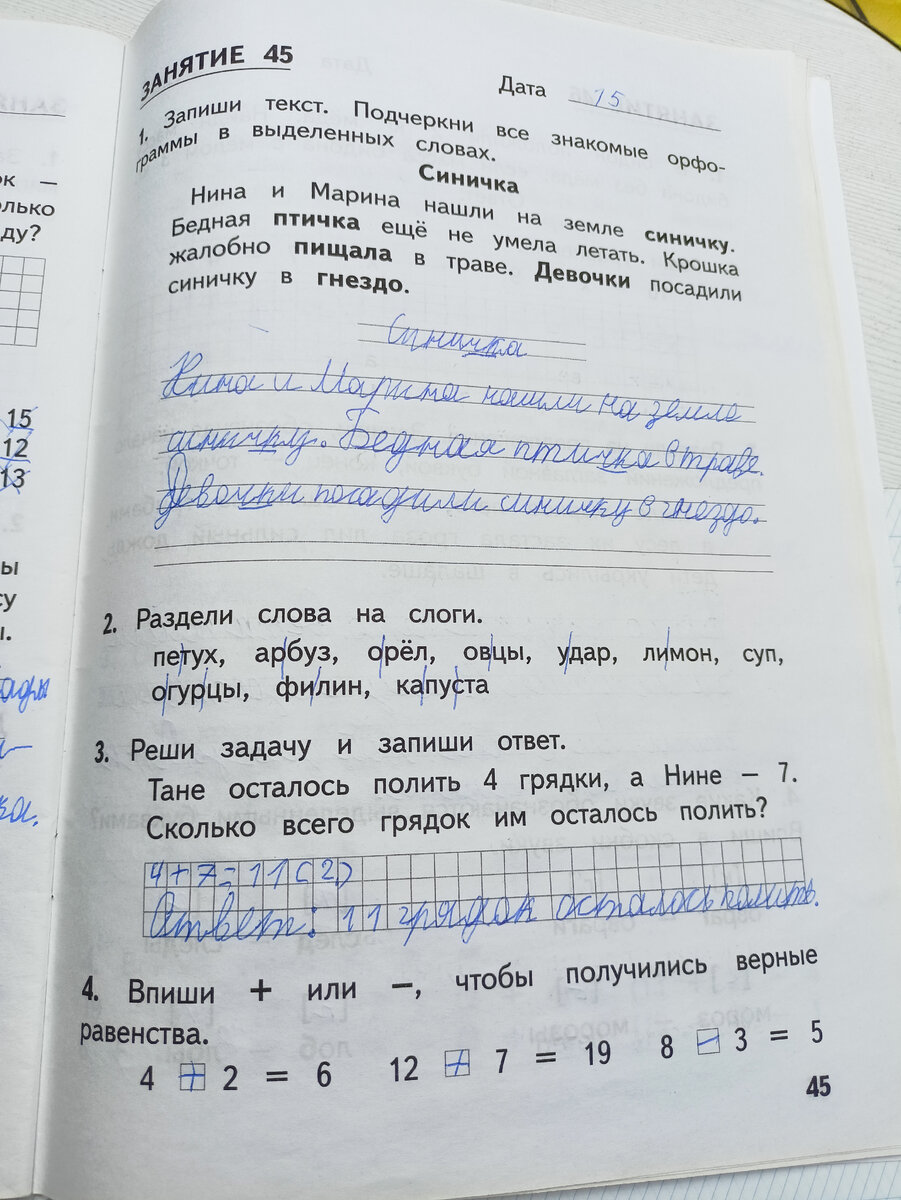 ЗАНЯТИЕ 45
Дата 15
1. Запиши текст. Подчеркни все знакомые орфо-
граммы в выделенных словах.
Синичка
Нина и Марина нашли на земле синичку.
Бедная птичка ещё не умела летать. Крошка
жалобно пищала в траве. Девочки посадили
синичку в гнездо.
Синичка
Нина и Марина нашли на земле
синичку. Бедная птичка в траве.
Девочки посадили синичку в гнездо.
2. Раздели слова на слоги.
петух, арбуз, орёл, овцы, удар, лимон, суп,
огурцы, филин, капуста
3. Реши задачу и запиши ответ.
Тане осталось полить 4 грядки, а Нине – 7.
Сколько всего грядок им осталось полить?
4+7=11(г.)
Ответ: 11 грядок осталось полить.
4. Впиши + или –, чтобы получились верные
равенства.
4 + 2 = 6 12 + 7 = 19 8 – 3 = 5
45
ок —
олько
ду?
15
12
13
ы
су
ка.